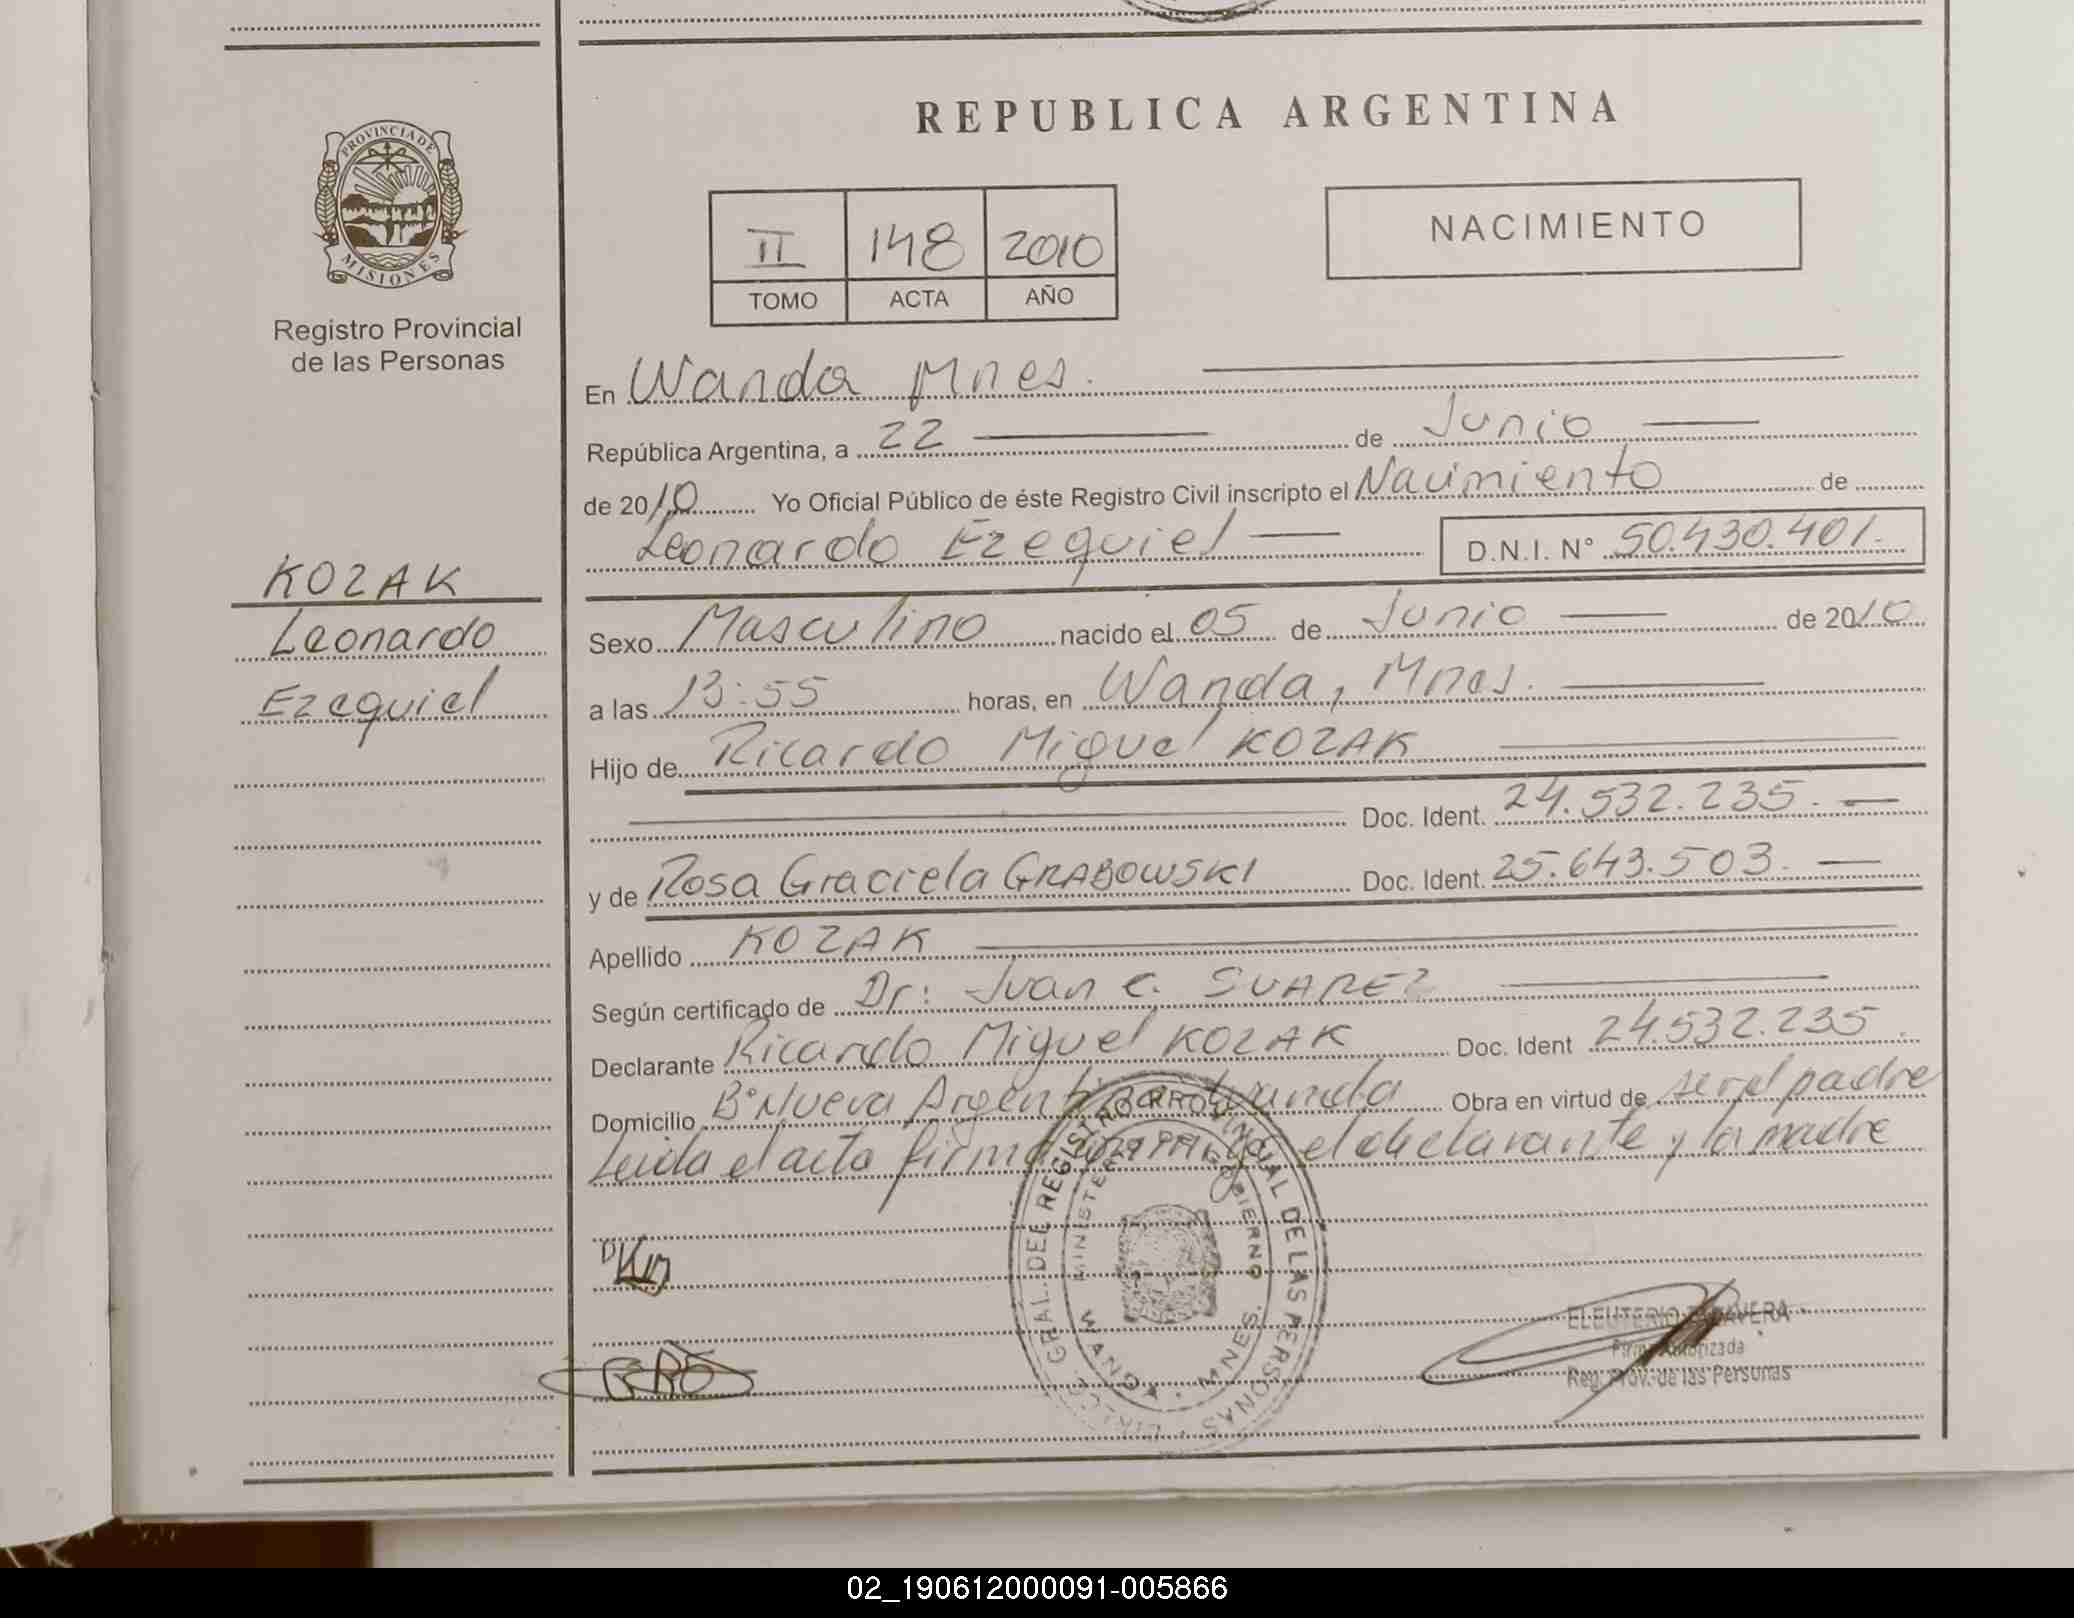 REPUBLICA ARGENTINA
PROVINCIA DE
MISIONES
Registro Provincial
de las Personas
II 148 2010
TOMO ACTA AÑO
NACIMIENTO
KOZAK
Leonardo
Ezequiel
En Wanda Mnes.
República Argentina, a 22 de Junio
de 2010 Yo Oficial Público de éste Registro Civil inscripto el Nacimiento de
Leonardo Ezequiel D.N.I. N° 50.430.401.
Sexo Masculino nacido el 05 de Junio de 2010
a las 13:55 horas, en Wanda, Mnes.
Hijo de Ricardo Miguel KOZAK
Doc. Ident. 24.532.235.
y de Rosa Graciela GRABOWSKI Doc. Ident. 25.643.503.
Apellido KOZAK
Según certificado de Dr: Juan C. SUAREZ
Declarante Ricardo Miguel KOZAK Doc. Ident 24.532.235.
Domicilio B° Nueva Argentina Wanda Obra en virtud de ser el padre
Leida el acta firma el declarante y la madre
GRAL. DEL REGISTRO PROVINCIAL DE LAS PERSONAS
MINISTERIO GOBIERNO
WANDA - MNES.
ELEUTERIO TALAVERA
Firma Autorizada
Reg. Prov. de las Personas
02_190612000091-005866